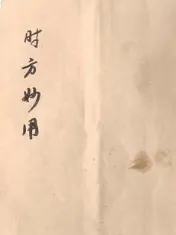 时方妙用